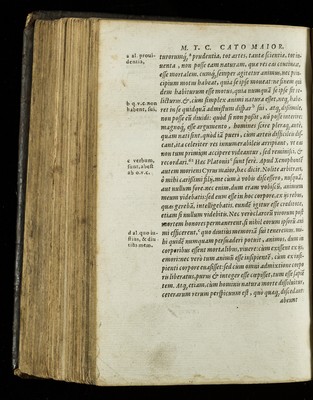 M. T. C. CATO MAIOR.
a al. proui-
dentia,
turorumq́;ᵃ prudentia, tot artes, tanta scientia, tot in-
uenta, non posse eam naturam, quæ res eas contineat,
esse mortalem. cumq́; semper agitetur animus, nec prin
cipium motus habeat, quia se ipse moueat: ne finem qui
dem habiturum esse motus, quia numquā se ipse sit re-
b q.v.c.non
habent, sui,
licturus. & cùm simplex animi natura esset, neq; habe-
ret in se quidquā admistum dispar sui, atq; dissimile,
non posse eū diuidi: quòd si non possit, nō posse interire:
magnoq́; esse argumento, homines scire pleraq; ante,
quàm nati sint, quòd iā pueri, cùm artes difficiles dis-
cant, ita celeriter res innumerabiles arripiant, ut eas
non tum primùm accipere videantur, sed reminisci, &
c verbum,
sunt, abest
ab o.v.c.
recordari.ᶜ Hæc Platonis sunt ferè. Apud Xenophontē
autem moriens Cyrus maior, hæc dicit. Nolite arbitrari,
ô mihi carissimi filij, me cùm à vobis discessero, nusquā,
aut nullum fore. nec enim, dum eram vobiscū, animum
meum videbatis: sed eum esse in hoc corpore, ex ijs rebus,
quas gerebā, intellegebatis. eundē igitur esse creditote,
etiam si nullum videbitis. Nec verò clarorū virorum post
mortem honores permanerent, si nihil eorum ipsorū ani
d al. quo iu-
stius, & diu
tius mem.
mi efficerent, quo diutius memoriā sui teneremus. mi-
hi quidē numquam persuaderi potuit, animos, dum in
corporibus essent mortalibus, viuere: cùm exissent ex ijs,
emori: nec verò tum animū esse insipientē, cùm ex insi-
pienti corpore euasisset: sed cùm omni admixtione corpo
ris liberatus, purus & integer esse cœpisset, tum esse sapiē
tem. Atq; etiam, cùm hominis natura morte dissoluitur,
ceterarum rerum perspicuum est, quò quæq; discedant:
abeunt